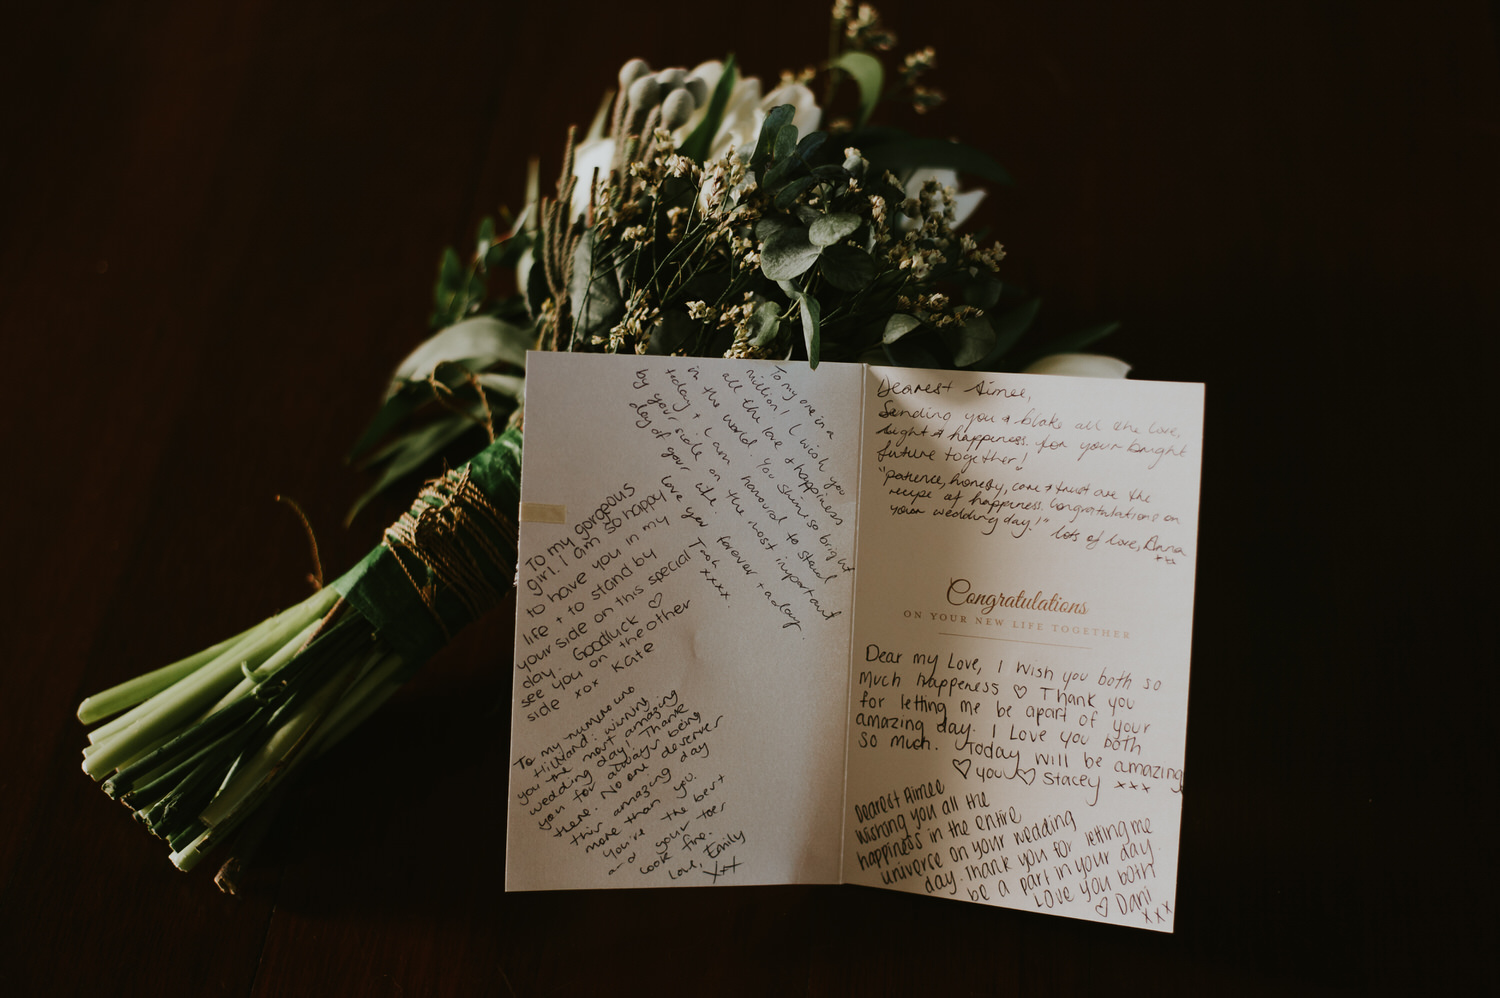 To my one in a
million! I wish you
all the love + happiness
in the world. You shine so bright
today + I am honourd to stand
by your side on the most important
day of your life.
love you forever + a day.
Tash
xxxx.
To my gorgeous
girl. I am so happy
to have you in my
life + to stand by
your side on this special
day. Goodluck ♡
see you on the other
side xox Kate
To my numero uno
Hillvand: wishing
you the most amazing
wedding day! Thanks
you for always being
there. No one deserves
this amazing day
more than you.
You're the best
and your toes
look fire.
Love, Emily
xxx
Dearest Aimee,
Sending you + blake all the love,
light + happiness for your bright
future together!
"patience, honesty, care + trust are the
recipe of happiness. Congratulations on
your wedding day!" lots of love, Anna
xx
Congratulations
ON YOUR NEW LIFE TOGETHER
Dear my Love, I wish you both so
Much happeness ♡ Thank you
for letting me be apart of your
amazing day. I Love you both
so much. Today will be amazing
♡ you ♡ Stacey xxx
Dearest Aimee
Wishing you all the
happiness in the entire
universe on your wedding
day. Thank you for letting me
be a part in your day.
Love you both
♡ Dani
xxx